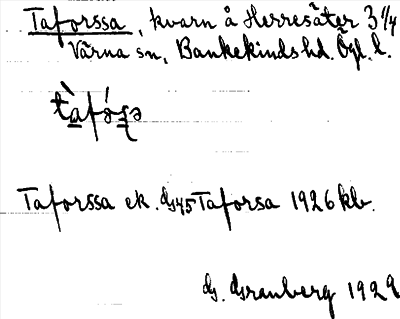 Taforssa, kvarn å Herresäter 3 1/4
Värna sn, Bankekinds hd. Ögl. l.
Taforssa ek. ds 45 Taforsa 1926 kb.
G. Granberg 1929